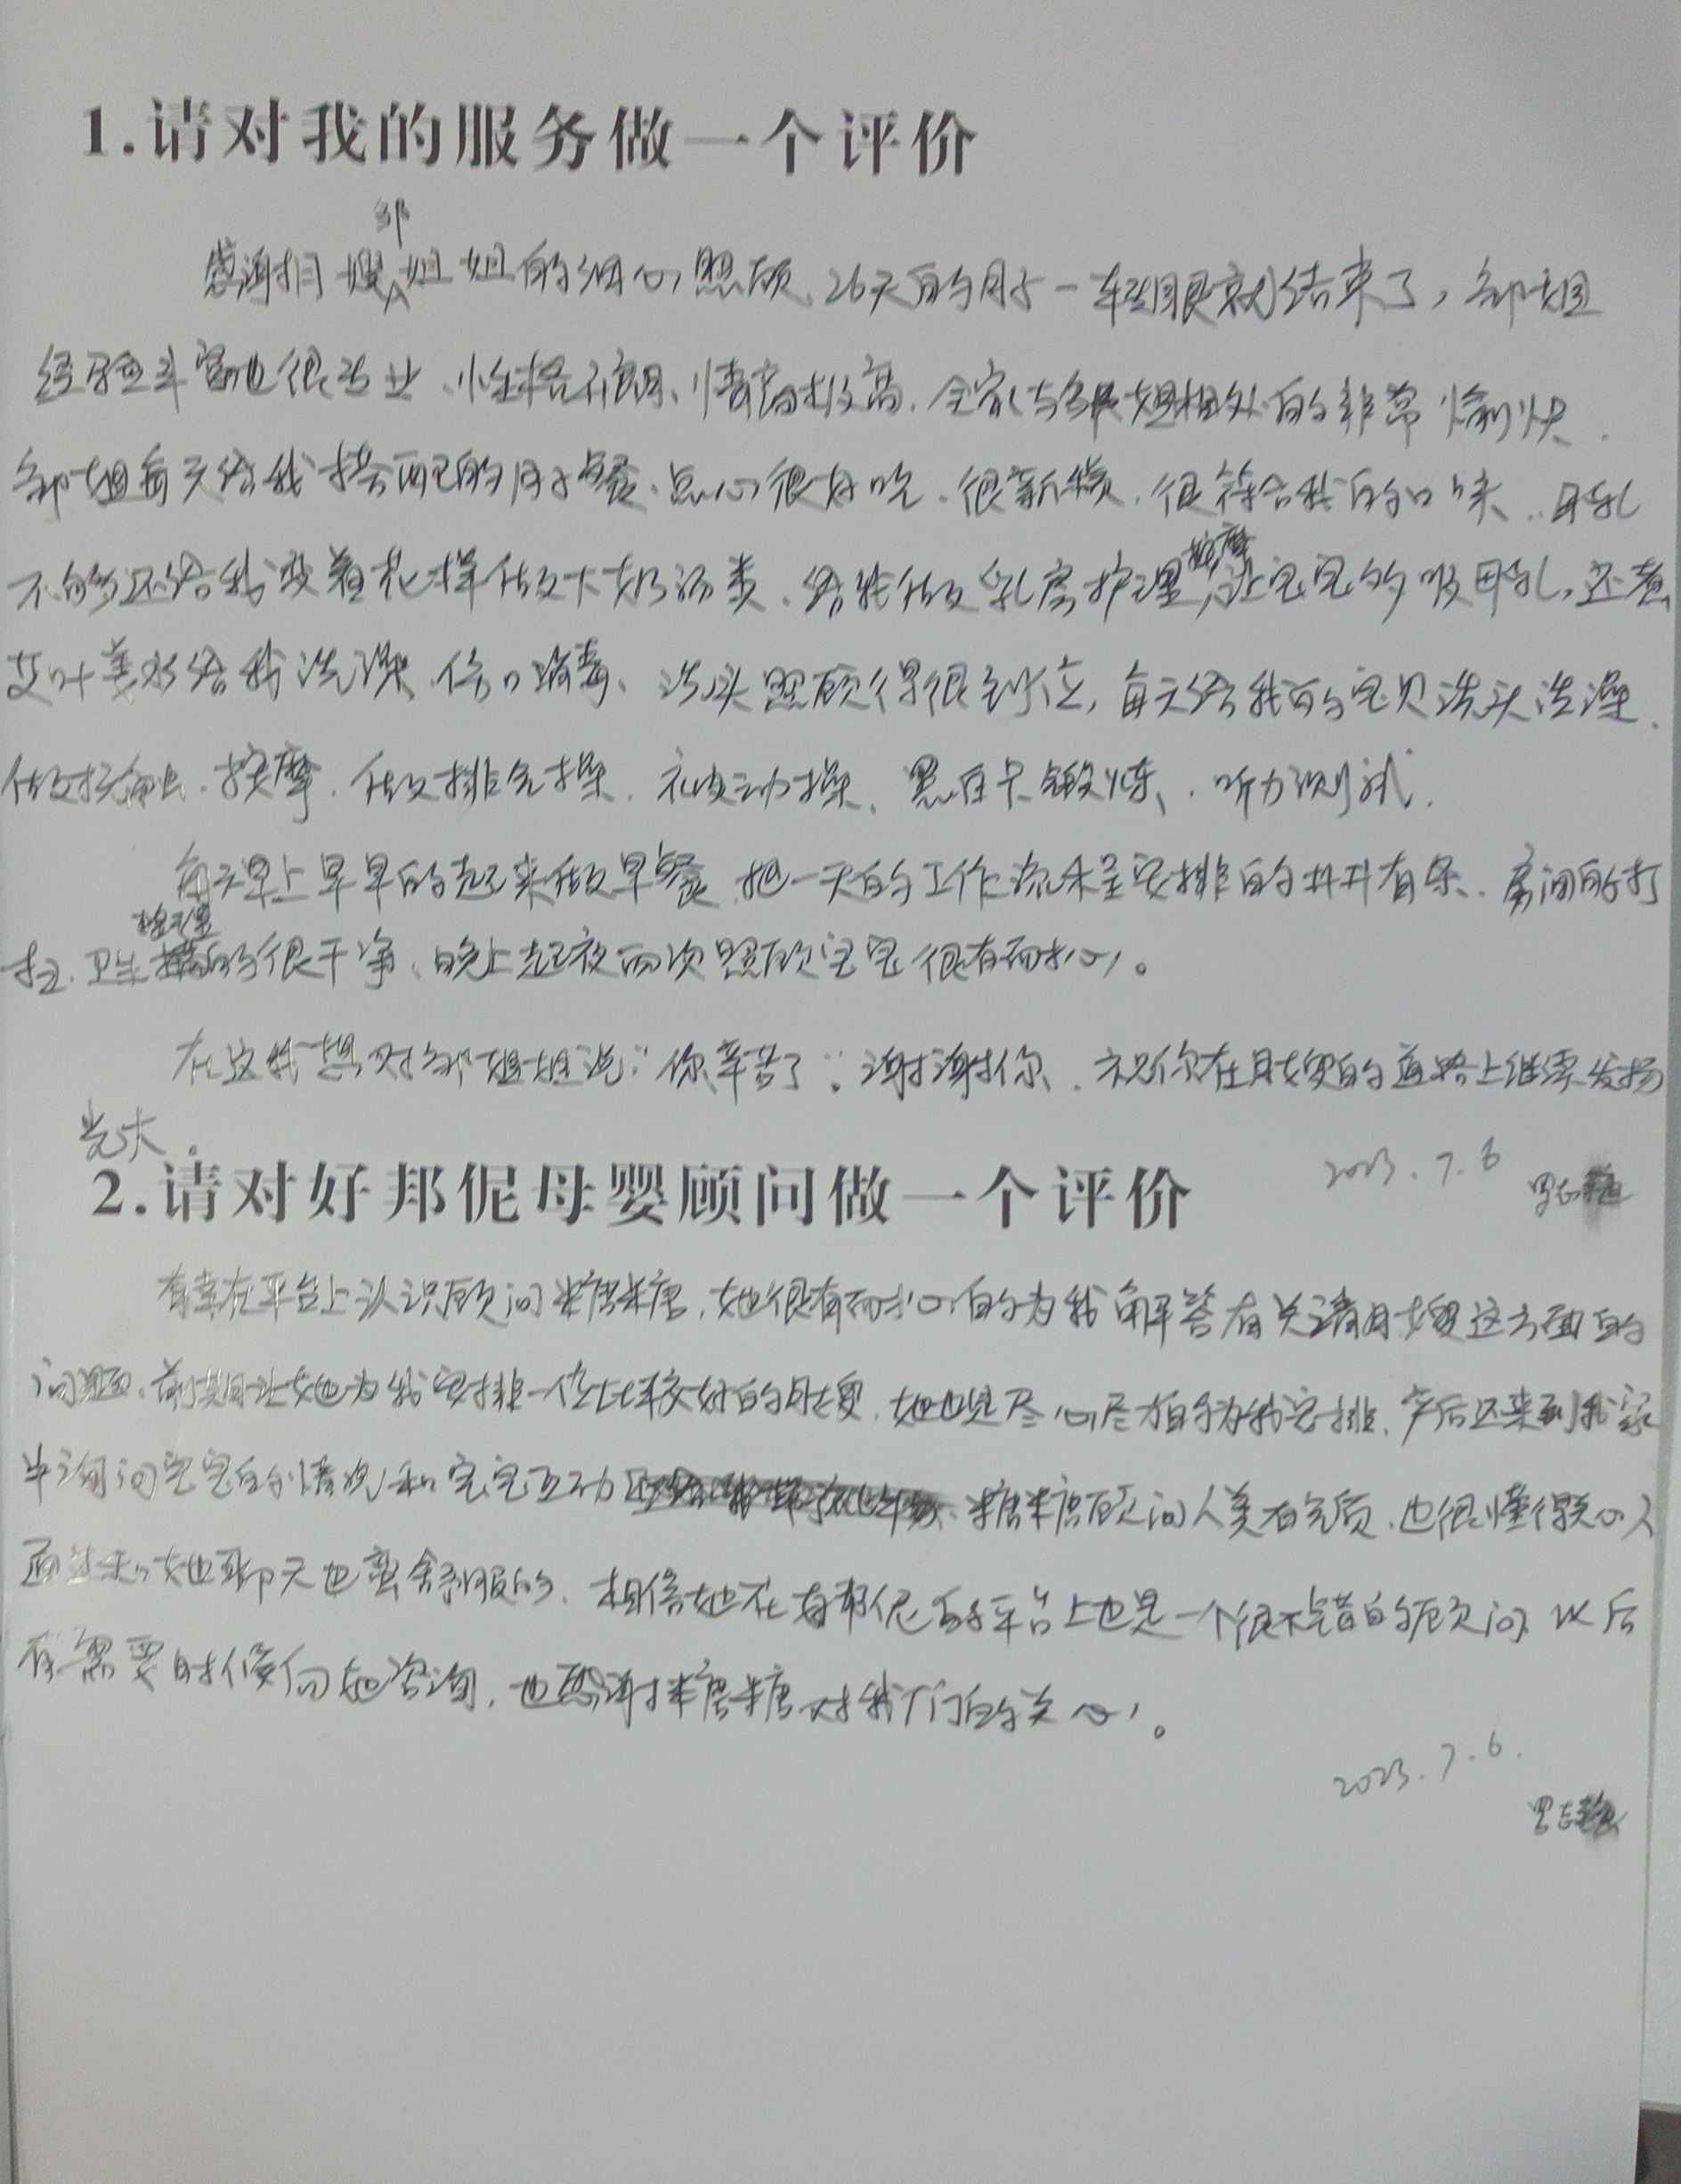 1.请对我的服务做一个评价
感谢月嫂邹姐姐的细心照顾、26天的月子一转眼就结束了，邹姐
经验丰富也很专业、性格开朗、情商极高、全家与邹姐相处的非常愉快.
邹姐每天给我搭配的月子餐、点心很好吃、很新颖、很符合我的口味..母乳
不够还给我变着花样做下奶汤类、给我做乳房护理按摩，让宝宝的吸母乳，还煮
艾叶姜水给我洗澡、伤口消毒、洗头照顾得很到位，每天给我的宝贝洗头洗澡.
做抚触、按摩、做排气操、被动操、黑白卡锻炼、听力测试.
每天早上早早的起来做早餐、把一天的工作流程安排的井井有条、房间的打
扫、卫生整理的很干净、晚上起夜两次照顾宝宝很有耐心。
在这我想对邹姐姐说：你辛苦了；谢谢你、祝你在月嫂的道路上继续发扬
光大。
2023.7.6 罗志
2.请对好邦伲母婴顾问做一个评价
有幸在平台上认识顾问糖糖，她很有耐心的为我解答有关请月嫂这方面的
问题、前期让她为我安排一位比较好的月嫂、她也是尽心尽力的为我安排、产后还来到我家
中询问宝宝的情况和宝宝互动、糖糖顾问人美有气质、也很懂得关心人
通过和她聊天也蛮舒服的、相信她在好邦伲的平台上也是一个很不错的顾问 以后
有需要时候向她咨询，也感谢糖糖对我们的关心。
2023.7.6.
罗志